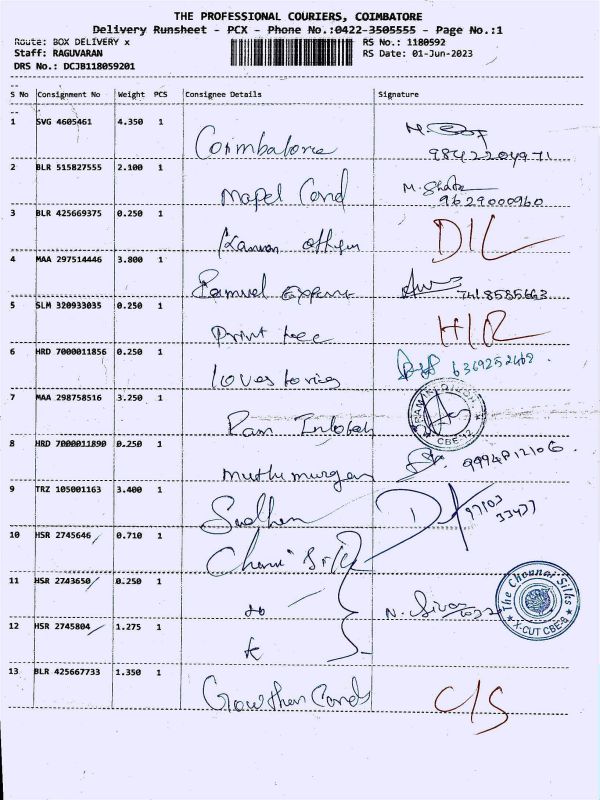 THE PROFESSIONAL COURIERS, COIMBATORE
Delivery Runsheet - PCX - Phone No.:0422-3505555 - Page No.:1
Route: BOX DELIVERY x RS No.: 1180592
Staff: RAGUVARAN RS Date: 01-Jun-2023
DRS No.: DCJB118059201
S No Consignment No Weight PCS Consignee Details Signature
1 SVG 4605461 4.350 1 Coimbatore
9842204971
2 BLR 515827555 2.100 1 Mapel Card M.
9629000960
3 BLR 425669375 0.250 1 D/L
4 MAA 297514446 3.800 1 Samuel
7418585663
5 SLM 320933035 0.250 1 Print tec H/R
6 HRD 7000011856 0.250 1 lovestories 6369252468
7 MAA 298758516 3.250 1 Ram
CBE-12
8 HRD 7000011890 0.250 1 muthumurgan
9 TRZ 105001163 3.400 1 Sudhan 97103
33477
10 HSR 2745646 0.710 1 Chennai Silk
11 HSR 2743650 0.250 1 do N. Siva
The Chennai Silks
X-CUT CBE-9
12 HSR 2745804 1.275 1
13 BLR 425667733 1.350 1 Gowthan Cards C/S